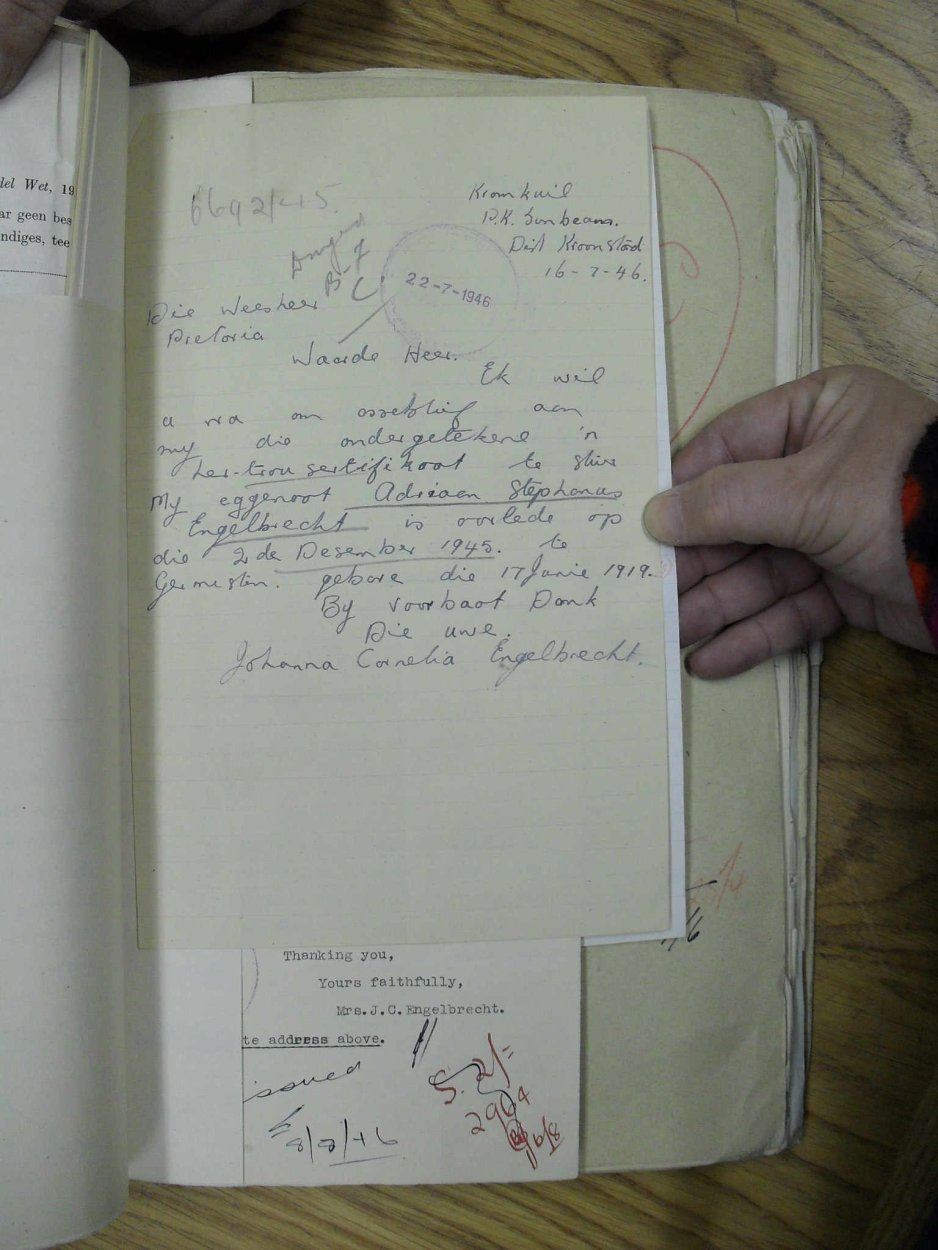 del Wet, 19
ar geen bes
ndiges, tee
6692/45.
Kromkuil
P.K. Sunbeam.
Dist Kroonstad
16-7-46.
22-7-1946
Die Weesheer
Pretoria
Waarde Heer.
Ek wil
u vra om asseblief aan
my die ondergetekene 'n
her-trou sertifikaat te stuur
My eggenoot Adriaan Stephanus
Engelbrecht is oorlede op
die 2de Desember 1945. te
Germiston. gebore die 17 Junie 1919.
By voorbaat Dank
Die uwe.
Johanna Cornelia Engelbrecht.
Thanking you,
Yours faithfully,
Mrs.J.C.Engelbrecht.
te address above.
issued
8/8/46
S. 2/=
2964
6/8